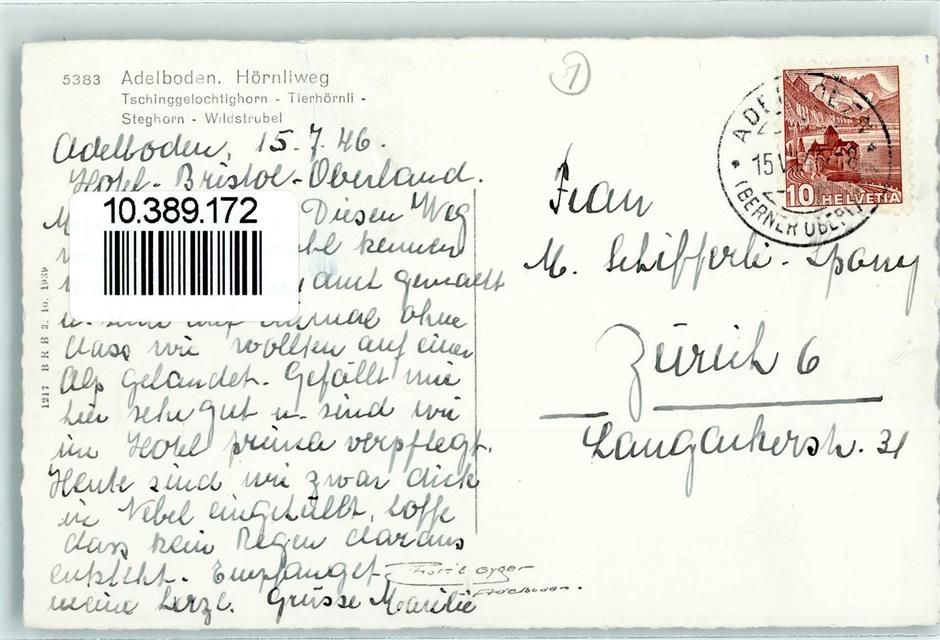 5383 Adelboden. Hörnliweg
Tschinggelochtighorn - Tierhörnli -
Steghorn - Wildstrubel
Adelboden, 15.7.46.
Hotel-Bristol-Oberland.
10.389.172
Diesen Weg
kennen
gemacht
u. sind auf einmal ohne
dass wir wollten auf einer
Alp gelandet. Gefällt mir
hier sehr gut u. sind wir
im Hotel prima verpflegt.
Heute sind wir zwar dick
in Nebel eingehüllt, hoffe
dass kein Regen daraus
entsteht. Empfanget
meine herzl. Grüsse Marilie
1217 B R B 3. 10. 1939
Adelboden.
1
ADELBODEN
15.V
18
(BERNER OBERL.)
10 HELVETIA
Frau
M. Schifferli-Spony
Zürich 6
Langackerstr. 31